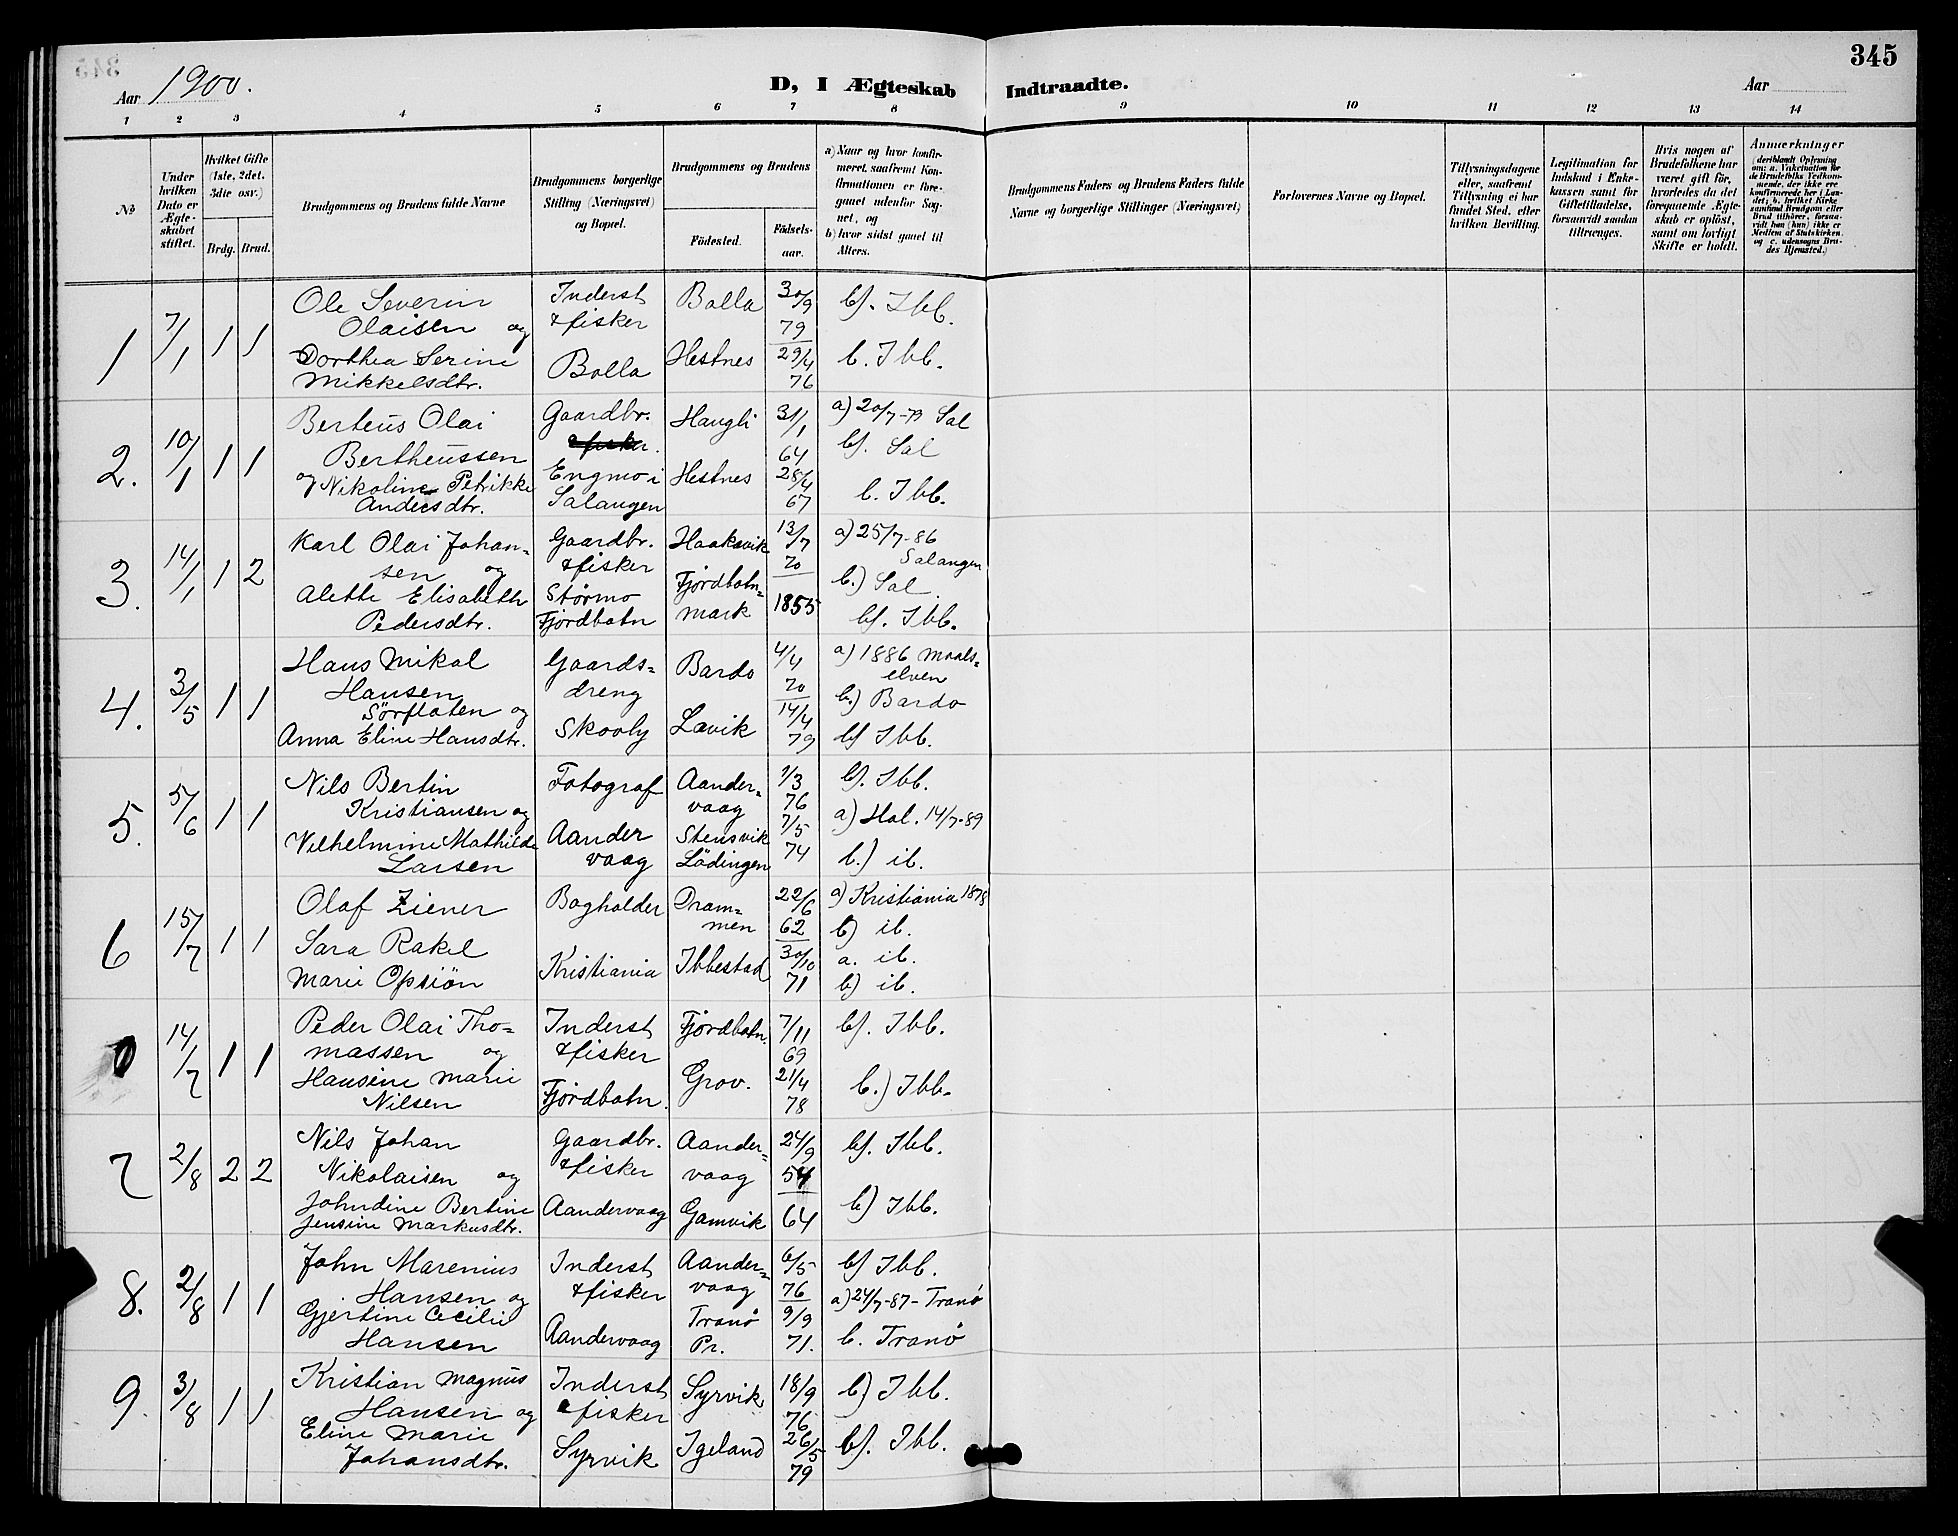 345
Aar 1900.
D, I Ægteskab Indtraadte.
Aar
1 2 3 4 5 6 7 8 9 10 11 12 13 14
№
Under hvilken Dato er Ægteskabet stiftet.
Hvilket Gifte (1ste, 2det, 3die osv.)
Brdg. Brud.
Brudgommens og Brudens fulde Navne
Brudgommens borgerlige Stilling (Næringsvei) og Bopæl.
Brudgommens og Brudens
Fødested.
Fødselsaar.
a) Naar og hvor konfirmeret, saafremt Konfirmationen er foregaaet udenfor Sognet, og
b) hvor sidst gaaet til Alters.
Brudgommens Faders og Brudens Faders fulde Navne og borgerlige Stillinger (Næringsvei)
Forlovernes Navne og Bopæl.
Tillysningsdagene eller, saafremt Tillysning ei har fundet Sted, efter hvilken Bevilling.
Legitimation for Indskud i Enkekassen samt for Giftetilladelse, forsaavidt saadan tiltrænges.
Hvis nogen af Brudefolkene har været gift før, hvorledes da det foregaaende Ægteskab er opløst, samt om lovligt Skifte er holdt.
Anmærkninger
(deriblandt Oplysning om: a. Vakcination for de Brudefolks Vedkommende, der ikke ere konfirmerede her i Landet; b. hvilket Kirkesamfund Brudgom eller Brud tilhører, forsaavidt han (hun) ikke er Medlem af Statskirken, og c. udensogns Brudes Hjemsted.)
1 7/1 1 1
Ole Severin Olaisen og
Dorthea Serine Mikkelsdtr.
Inderst & fisker
Bolla
Bolla 30/9 79 b/. Ibb.
Hestnes 29/4 76 b. Ibb.
2. 10/1 1 1
Berteus Olai Bertheussen
og Nikoline Petrikke Andersdtr.
Gaardbr.
Engmo i Salangen
Haugli 31/1 64 a) 20/7-79 Sal
b/. Sal
Hestnes 28/4 67 b. Ibb.
3. 14/1 1 2
Karl Olai Johansen og
Alette Elisabeth Pedersdtr.
Gaardbr. & fisker
Störmo Fjordbotn
Haakavik 13/7 70 a) 25/7-86 Salangen
b.) Sal.
Fjordbotn=mark 1855 b/. Ibb.
4. 3/5 1 1
Hans Mikal Hansen Sörfloten og
Anna Eline Hansdtr.
Gaards=dreng
Skovly
Bardo 4/4 70 a) 1886 Maals=elven
b.) Bardo
Lavik 14/4 79 b/ Ibb.
5. 5/6 1 1
Nils Bertin Kristiansen og
Vilhelmine Mathilde Larsen
Fotograf
Aandervaag
Aander=vaag 1/3 76 b/. Ibb.
Stensvik Lödingen 7/5 74 a) Hol. 14/7-89
b.) ib.
6 15/7 1 1
Olaf Ziener
Sara Rakel Marie Opsiön
Bogholder
Kristiania
Dram=men 22/6 62 a) Kristiania 1878
b) ib.
Ibbestad 30/10 71 a. ib.
b) ib.
0 14/7 1 1
Peder Olai Tho=massen og
Hansine Marie Nilsen
Inderst & fisker
Fjordbotn.
Fjordbotn. 7/11 69 b/. Ibb.
Grov. 21/4 78 b.) Ibb.
7 2/8 2 2
Nils Johan Nikolaisen og
Johndine Bertine Jensine Markusdtr.
Gaardbr. & fisker
Aandervaag
Aander=vaag 24/9 54 b/. Ibb.
Gamvik 64 b) Ibb.
8. 2/8 1 1
John Marenius Hansen og
Gjertine Cecilie Hansen
Inderst & fisker
Aandervaag
Aander=vaag 6/5 76 b/ Ibb.
Tranö Pr. 9/9 71. a) 24/7-87-Tranö
b. Tranö
9. 3/8 1 1
Kristian Magnus Hansen og
Eline Marie Johansdtr.
Inderst & fisker
Syrvik
Syrvik 18/9 76 b) Ibb.
Igeland 26/5 79 b/. Ibb.